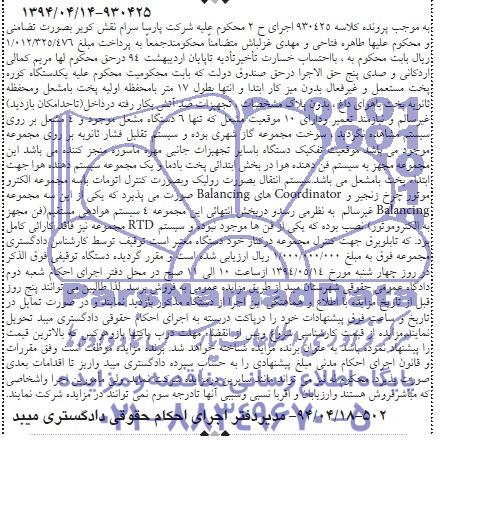 ۱۳۹۴/۰۴/۱۴-۹۳۰۴۲۵
به موجب پرونده کلاسه ۹۳۰۴۲۵ اجرای ح ۲ محکوم علیه شرکت پارسا سرام نقش کویر بصورت تضامنی
و محکوم علیها طاهره فتاحی و مهدی غزلباش متضامناً محکومندجمعاً به پرداخت مبلغ ۱/۰۱۲/۳۲۵/۴۷۶
ریال بابت محکوم به ، بااحتساب خسارت تأخیرتأدیه تاپایان اردیبهشت ۹۴ درحق محکوم لها مریم کمالی
اردکانی و صدی پنج حق الاجرا درحق صندوق دولت که بابت محکومیت محکوم علیه یکدستگاه کوره
پخت مستعمل و غیرفعال بدون میز کار ابتدا و انتها بطول ۱۷ متر بامحفظه اولیه پخت بامشعل ومحفظه
ثانویه پخت باهوای داغ بدون پلاک مشخصات ، تجهیزات ضد آتش بکار رفته درداخل(تاحدامکان بازدید)
غیرسالم و نیازمند تعمیر ودارای ۱۰ موقعیت مشعل که تنها ۶ دستگاه مشعل موجود و ۴ مشعل بر روی
سیستم مشاهده نگردید . سوخت مجموعه گاز شهری بوده و سیستم تقلیل فشار ثانویه بر روی مجموعه
موجود می باشد موقعیت تفکیک دستگاه باسایر تجهیزات جانبی مهره ماسوره منجز کننده می باشد این
مجموعه مجهز به سیستم فن دهنده هوا در بخش ابتدائی پخت بادما و یک مجموعه سیستم دهنده هوا جهت
ابتداء پخت بامشعل می باشد سیستم انتقال بصورت رولیک وبصورت کنترل اتومات باسه مجموعه الکترو
موتور چرخ زنجیر و Coordinator های Balancing صورت می پذیرد که یکی از این سه مجموعه
Balancing غیرسالم به نظرمی رسدو دربخش انتهائی این مجموعه ۴ سیستم هوادهی مستقیم(فن مجهز
به الکتروموتور) نصب بوده که یکی از فن ها موجود نبوده و سیستم RTD مجموعه نیز فاقد کارائی کامل
بود. که تابلوبرق جهت کنترل مجموعه درکنار خود دستگاه معتبر است توقیف توسط کارشناس دادگستری
مجموعه فوق به مبلغ ۱/۰۰۰/۰۰۰/۰۰۰ ریال ارزیابی شده است و مقرر گردیده دستگاه توقیفی فوق الذکر
در روز چهار شنبه مورخ ۱۳۹۴/۰۵/۱۴ ازساعت ۱۰ الی ۱۱ صبح در محل دفتر اجرای احکام شعبه دوم
دادگاه عمومی حقوقی شهرستان میبد از طریق مزایده عمومی به فروش برسد. لذا طالبین می توانند پنج روز
قبل از تاریخ مزایده با اطلاع و هماهنگی این اجرا از دستگاه مذکور بازدید نمایند و در صورت تمایل در
تاریخ و ساعت فوق پیشنهادات خود را درپاکت دربسته به اجرای احکام حقوقی دادگستری میبد تحویل
نمایند. مزایده از قیمت کارشناسی شروع و پس از انقضاء مهلت درب پاکتها بازوهرکس که بالاترین قیمت
را پیشنهاد نموده باشد به عنوان برنده مزایده شناخته خواهد شد. برنده مزایده موظف است وفق مقررات
و قانون اجرای احکام مدنی مبلغ پیشنهادی را به حساب سپرده دادگستری میبد واریز تا اقدامات بعدی
صورت پذیرد محکوم له نیز می تواند مانندسایرین درمزایده شرکت نماید. ولی مأمورین اجرا واشخاصی
که مباشرفروش هستند وارزیابان و اقربا نسبی وسببی آنها تادرجه سوم نمی توانند در مزایده شرکت نمایند.
۹۴/۰۴/۱۸-۵۰۲- مدیردفتر اجرای احکام حقوقی دادگستری میبد
۰۲۱-۸۸۳۴۹۶۷۰-۵